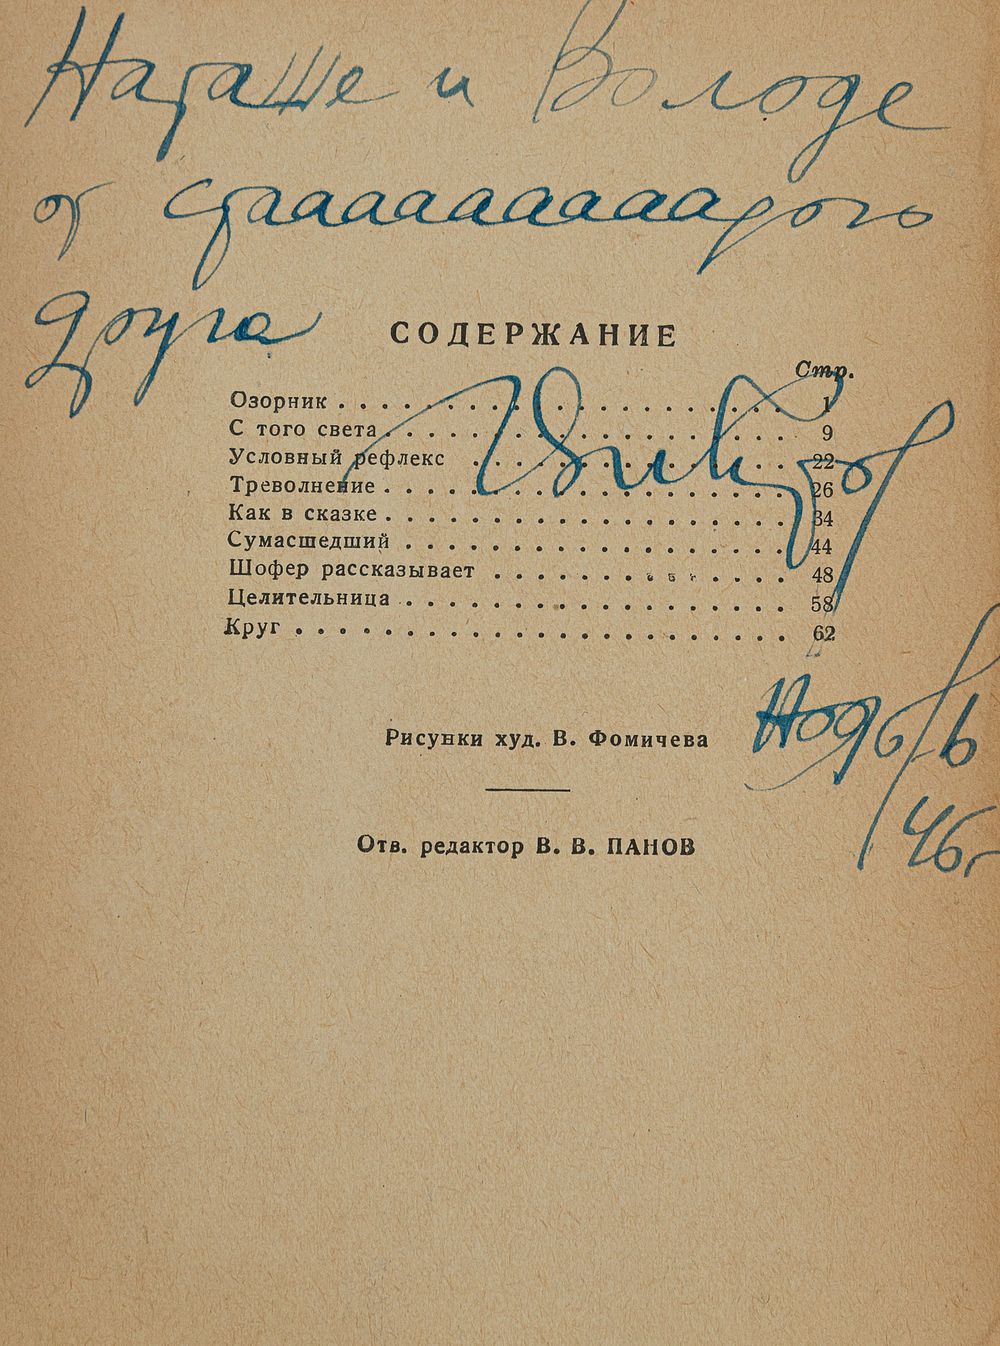 Наташе и Володе
от стааааааааарого
друга
СОДЕРЖАНИЕ
Стр.
Озорник 1
С того света 9
Условный рефлекс 22
Треволнение 26
Как в сказке 34
Сумасшедший 44
Шофер рассказывает 48
Целительница 58
Круг 62
Ноябрь
46 г
Рисунки худ. В. Фомичева
Отв. редактор В. В. ПАНОВ